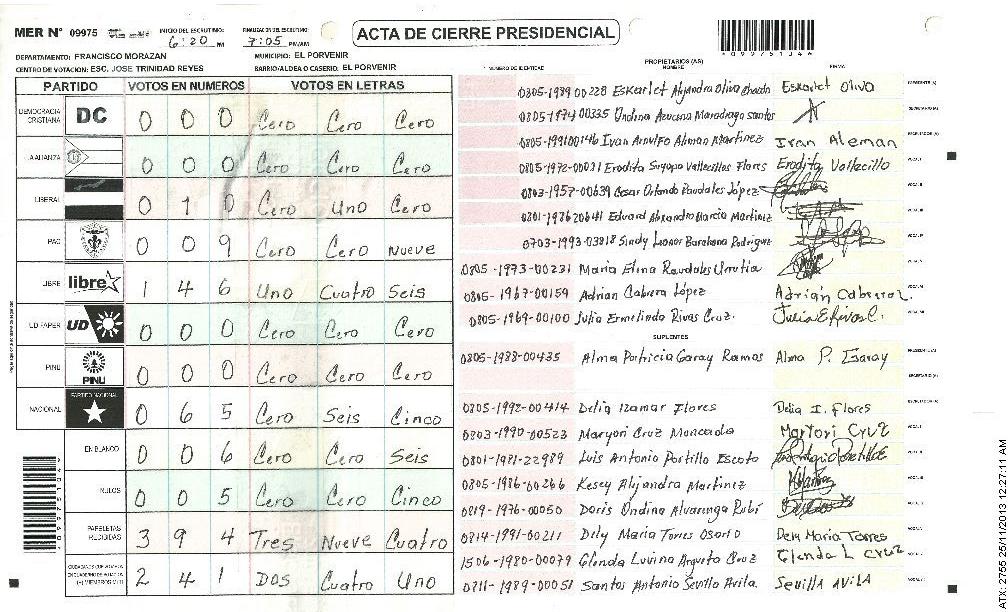 MER N° 09975
INICIO DEL ESCRUTINIO: 6:20 PM
FINALIZACION DEL ESCRUTINIO: 7:05 PM/AM
ACTA DE CIERRE PRESIDENCIAL
DEPARTAMENTO: FRANCISCO MORAZAN
MUNICIPIO: EL PORVENIR
CENTRO DE VOTACION: ESC. JOSE TRINIDAD REYES
BARRIO/ALDEA O CASERIO: EL PORVENIR
PARTIDO VOTOS EN NUMEROS VOTOS EN LETRAS
DEMOCRACIA CRISTIANA DC 0 0 0 Cero Cero Cero
ALIANZA 0 0 0 Cero Cero Cero
LIBERAL 0 1 0 Cero Uno Cero
PAC 0 0 9 Cero Cero Nueve
LIBRE libre 1 4 6 Uno Cuatro Seis
UD FAPER UD 0 0 0 Cero Cero Cero
PINU PINU 0 0 0 Cero Cero Cero
NACIONAL PARTIDO NACIONAL 0 6 5 Cero Seis Cinco
EN BLANCO 0 0 6 Cero Cero Seis
NULOS 0 0 5 Cero Cero Cinco
PAPELETAS RECIBIDAS 3 9 4 Tres Nueve Cuatro
2 4 1 Dos Cuatro Uno
NUMERO DE IDENTIDAD PROPIETARIOS (AS) NOMBRE FIRMA
0805-1989 00228 Eskarlet Alejandra Oliva Eskarlet Oliva
0805-1974 00335 Ondina Azucena Maradiaga santos
0805-1991 00146 Ivan Arnulfo Aleman Martinez Ivan Aleman
0805-1972-00031 Erodita Suyapa Vallecillos Flores Erodita Vallecillo
0803-1957-00639 Cesar Orlando Raudales López
0801-1986 20641 Eduard Alexandro Garcia Martinez
0703-1993-03818 Sindy Leonor Barahona Rodriguez
0805-1973-00231 Maria Elina Raudales Urrutia
0805-1967-00159 Adrian Cabrera López Adrián Cabrera L.
0805-1969-00100 Julia Ermelinda Rivas Cruz. Julia E Rivas C.
SUPLENTES
0805-1988-00435 Alma Patricia Garay Ramos Alma P. Garay
0805-1992-00414 Delia Izamar Flores Delia I. Flores
0803-1990-00523 Maryori Cruz Moncada Maryori Cruz
0801-1981-22989 Luis Antonio Portillo Escoto
0805-1986-00266 Kesey Alejandra Martinez
0819-1976-00050 Doris Ondina Alvarenga Rubí
0814-1991-00211 Dily Maria Torres Osorto Dely Maria Torres
1506-1980-00079 Glenda Luvina Argueta Cruz Glenda L Cruz
0811-1989-00051 Santos Antonio Sevilla Avila. Sevilla Avila
ATX-2755 25/11/2013 12:27:11 AM